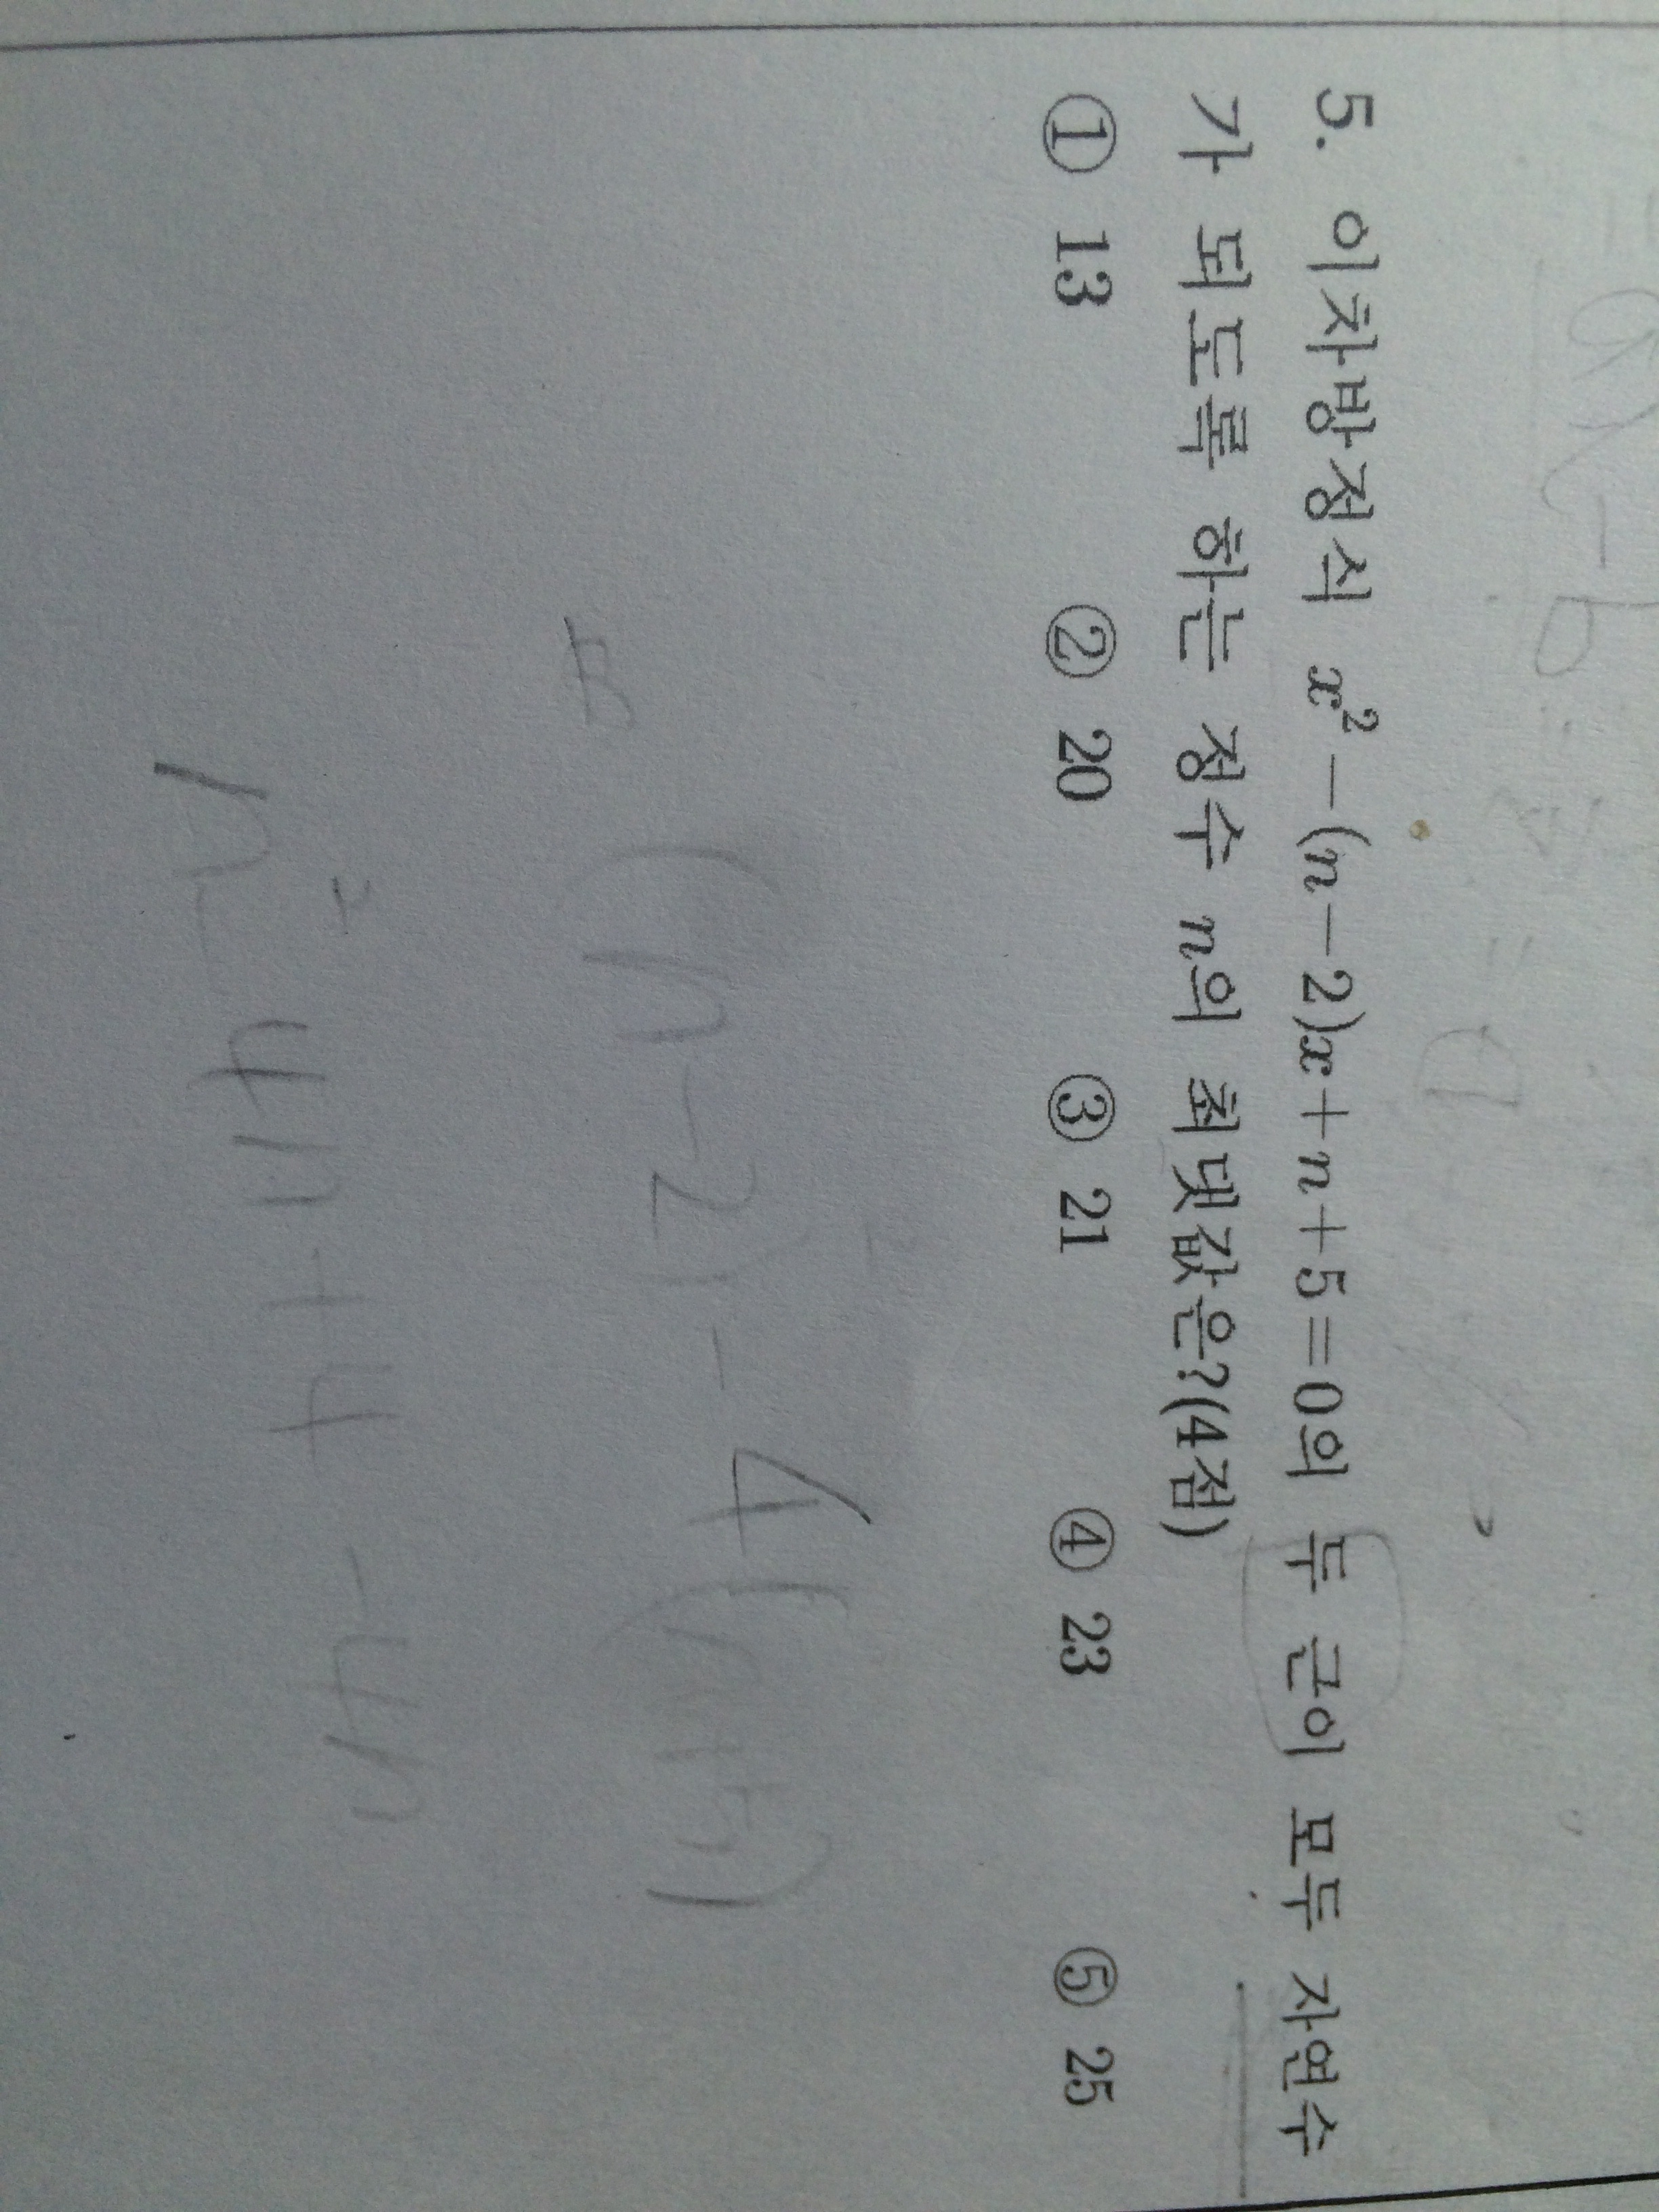 5. 이차방정식 x²-(n-2)x+n+5=0의 두 근이 모두 자연수
가 되도록 하는 정수 n의 최댓값은?(4점)
① 13 ② 20 ③ 21 ④ 23 ⑤ 25
(n-2)-4(n+5)